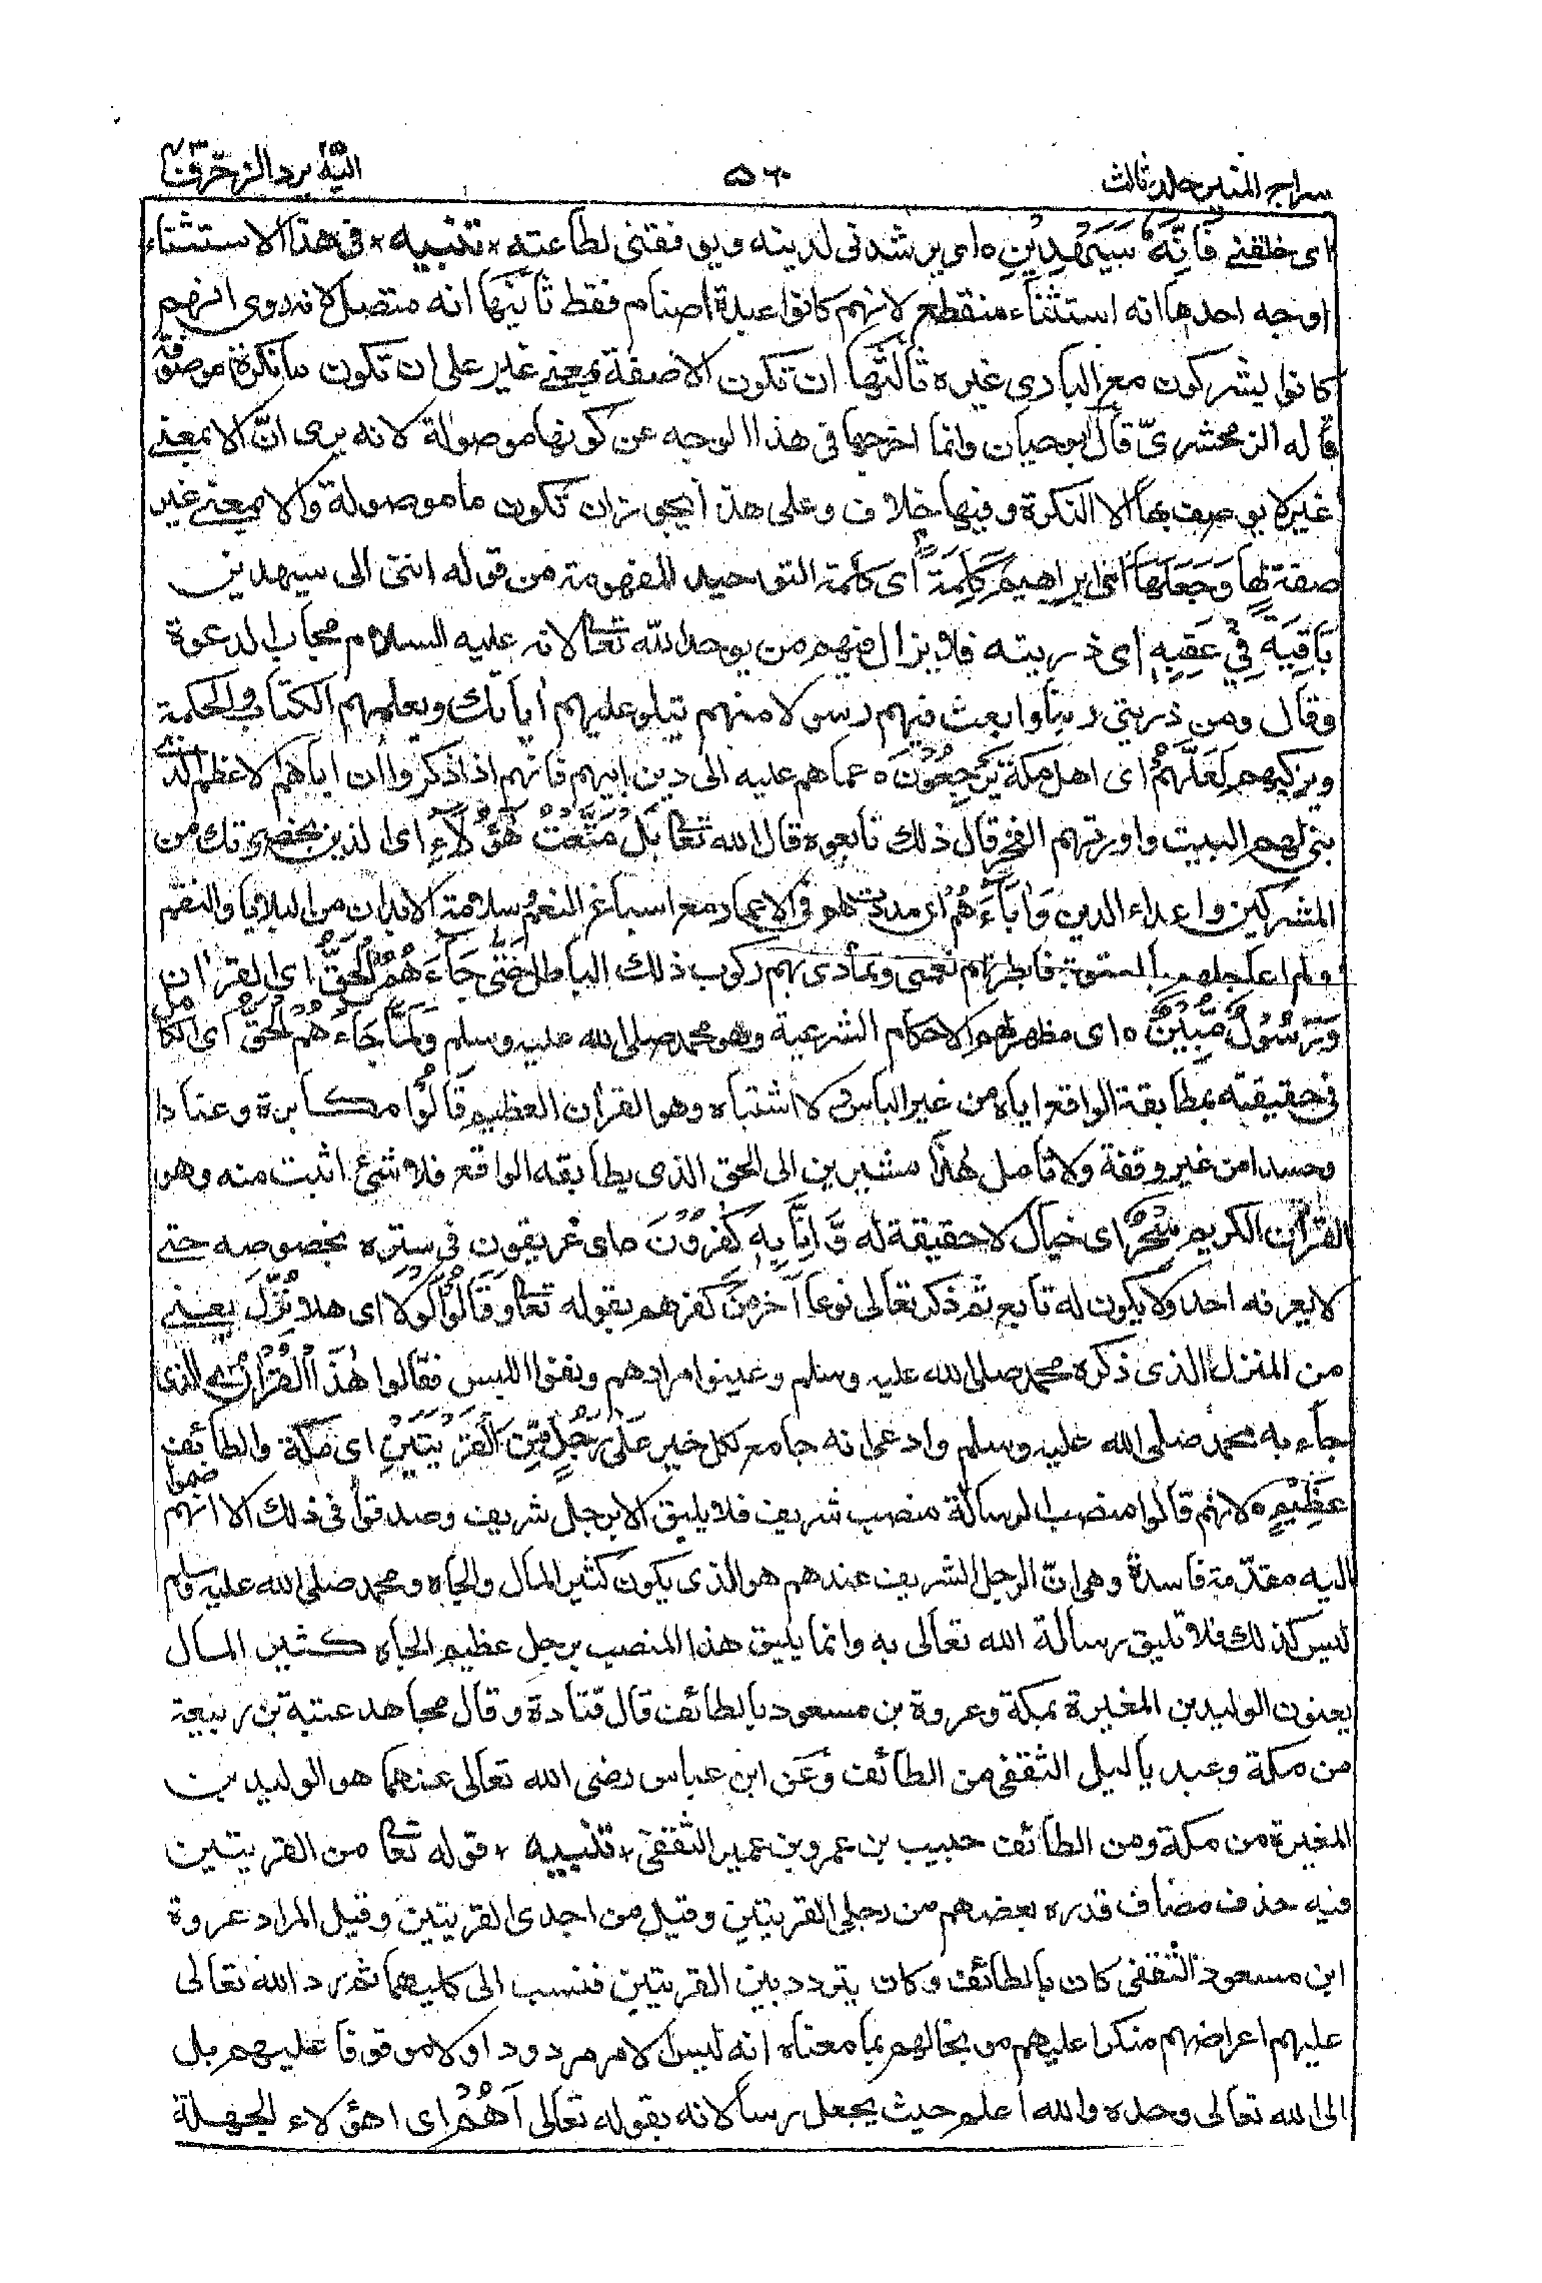 سراج المنير جلد ثالث
٥٦٠
اليه يرد الزخرف
اى خلقنى فَاِنَّهٗ سَيَهْدِيْنِ ه اى يرشدنى لدينه ويوفقنى لطاعته * تنبيه * فى هذا الاستثناء
اوجه احدها انه استثناء منقطع لانهم كانوا عبدة اصنام فقط ثانيها انه متصل لانه روى انهم
كانوا يشركون مع البارى غيره ثالثها ان تكون الا صفة بمعنى غير على ان تكون ما نكرة موصوفة
قاله الزمخشرىّ قال ابو حيان وانما اخرجها فى هذا الوجه عن كونها موصولة لانه يرى انّ الا بمعنى
غير لا يوصف بها الا النكرة وفيها خلاف وعلى هذا يجوز ان تكون ما موصولة والا بمعنى غير
صفة لها وَجَعَلَهَا اى ابراهيم كَلِمَةً اى كلمة التوحيد المفهومة من قوله اننى الى سيهدين
بَاقِيَةً فِيْ عَقِبِهٖ اى ذريته فلا يزال فيهم من يوحد الله تعالى لانه عليه السلام مجاب الدعوة
وقال ومن ذريتى ربنا وابعث فيهم رسولا منهم يتلو عليهم اياتك ويعلمهم الكتاب والحكمة
ويزكيهم لَعَلَّهُمْ اى اهل مكة يَرْجِعُوْنَ ه عما هم عليه الى دين ابيهم فانهم اذا ذكروا ان اباهم الاعظم الذى
بنى لهم البيت واورثهم الفخر قال ذلك تابعوه قال الله تعالى بَلْ مَتَّعْتُ هٰٓؤُلَآءِ اى الذين بحضرتك من
المشركين واعداء الدين وَاٰبَآءَهُمْ اى مددت لهم فى الاعمار مع اسباغ النعم وسلامة الابدان من البلايا والنقم
ولم اعاجلهم بالعقوبة فابطرتهم نعمى وتمادى بهم ركوب ذلك الباطل حَتّٰى جَآءَهُمُ الْحَقُّ اى القرٰان
وَرَسُوْلٌ مُّبِيْنٌ ه اى مظهر لهم الاحكام الشرعية وهو محمد صلى الله عليه وسلم وَلَمَّا جَآءَهُمُ الْحَقُّ اى الكامل
فى حقيقته بمطابقة الواقع اياه من غير الباس ولا اشتباه وهو القراٰن العظيم قَالُوْا مكابرة وعنادا
وحسدا من غير وقفة ولا تامل هٰذَا مشيرين الى الحق الذى يطابقه الواقع فلا شئ اثبت منه وهو
القراٰن الكريم سِحْرٌ اى خيال لا حقيقة له وَّاِنَّا بِهٖ كٰفِرُوْنَ ه اى غريقون فى ستره بخصوصه حتى
لا يعرفه احد ولا يكون له تابع ثم ذكر تعالى نوعا اٰخر من كفرهم بقوله تعالى وَقَالُوْا لَوْلَا اى هلا نُزِّلَ يعنى
من المنزل الذى ذكره محمد صلى الله عليه وسلم وعينوا مرادهم ونفوا اللبس فقالوا هٰذَا الْقُرْاٰنُ الذى
جاء به محمد صلى الله عليه وسلم وادعى انه جامع لكل خير عَلٰى رَجُلٍ مِّنَ الْقَرْيَتَيْنِ اى مكة والطائف
عَظِيْمٍ ه لانهم قالوا منصب الرسالة منصب شريف فلا يليق الا برجل شريف وصدقوا فى ذلك الا انهم ضموا
اليه مقدّمة فاسدة وهى انّ الرجل الشريف عندهم هو الذى يكون كثير المال والجاه ومحمد صلى الله عليه وسلم
ليس كذلك فلا تليق رسالة الله تعالى به وانما يليق هذا المنصب برجل عظيم الجاه كثير المال
يعنون الوليد بن المغيرة بمكة وعروة بن مسعود بالطائف قال قتادة وقال مجاهد عتبة بن ربيعة
من مكة وعبد ياليل الثقفى من الطائف وعن ابن عباس رضى الله تعالى عنهما هو الوليد بن
المغيرة من مكة ومن الطائف حبيب بن عمرو بن عمير الثقفى * تنبيه * قوله تعالى من القريتين
فيه حذف مضاف قدره بعضهم من رجلى القريتين وقيل من احدى القريتين وقيل المراد عروة
ابن مسعود الثقفى كان بالطائف وكان يتردد بين القريتين فنسب الى كليهما ثم رد الله تعالى
عليهم اعراضهم منكرا عليهم موبخا لهم بما معناه انه ليس الامر مردودا ولا موقوفا عليهم بل
الى الله تعالى وحده والله اعلم حيث يجعل رسالاته بقوله تعالى اَهُمْ اى اهؤلاء الجهلة